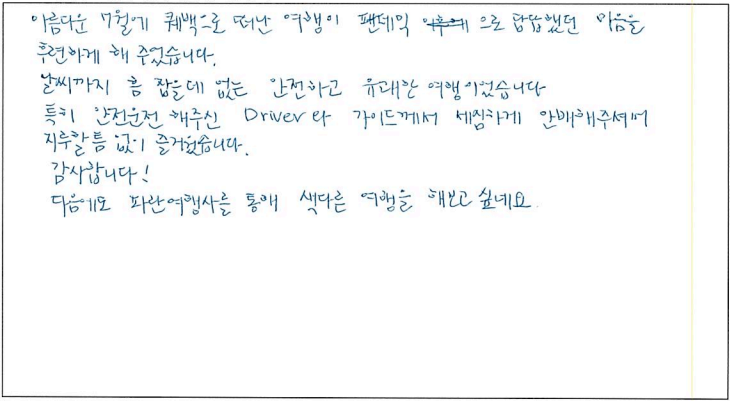 아름다운 7월에 퀘백으로 떠난 여행이 팬데믹 으로 답답했던 마음을
후련하게 해 주었습니다.
날씨까지 흠 잡을데 없는 안전하고 유쾌한 여행이었습니다
특히 안전운전 해주신 Driver와 가이드께서 세심하게 안배해주셔서
지루할틈 없이 즐거웠습니다.
감사합니다!
다음에도 파란여행사를 통해 색다른 여행을 해보고 싶네요.